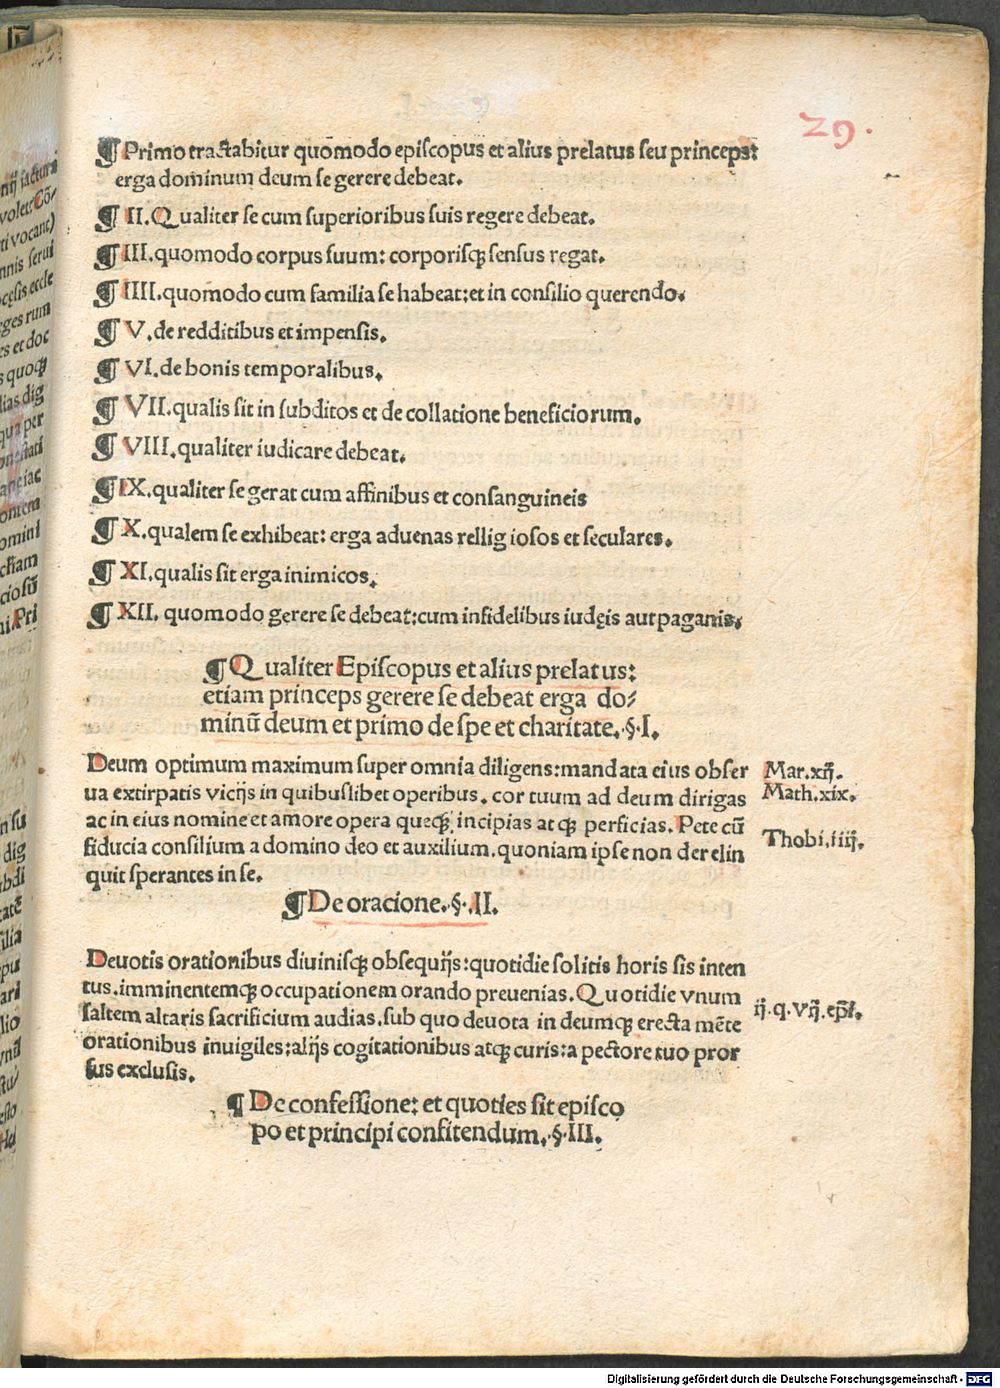 29.
¶ Primo tractabitur quomodo episcopus et alius prelatus seu princeps:
erga dominum deum se gerere debeat.
¶ II. Qualiter se cum superioribus suis regere debeat.
¶ III. quomodo corpus suum: corporisqꝫ sensus regat.
¶ IIII. quomodo cum familia se habeat: et in consilio querendo.
¶ V. de redditibus et impensis.
¶ VI. de bonis temporalibus.
¶ VII. qualis sit in subditos et de collatione beneficiorum.
¶ VIII. qualiter iudicare debeat.
¶ IX. qualiter se gerat cum affinibus et consanguineis
¶ X. qualem se exhibeat: erga aduenas relligiosos et seculares.
¶ XI. qualis sit erga inimicos.
¶ XII. quomodo gerere se debeat: cum infidelibus iudęis aut paganis.
¶ Qualiter Episcopus et alius prelatus:
etiam princeps gerere se debeat erga do⸗
minū deum et primo de spe et charitate. §. I.
Deum optimum maximum super omnia diligens: mandata eius obser
ua extirpatis vicijs in quibuslibet operibus. cor tuum ad deum dirigas
ac in eius nomine et amore opera quęcqꝫ incipias atqꝫ perficias. Pete cū
fiducia consilium a domino deo et auxilium. quoniam ipse non derelin
quit sperantes in se.
Mar. xij.
Math. xix.
Thobi. iiij.
¶ De oracione. §. II.
Deuotis orationibus diuinisqꝫ obsequijs: quotidie solitis horis sis inten
tus. imminentemqꝫ occupationem orando preuenias. Quotidie vnum
saltem altaris sacrificium audias. sub quo deuota in deumqꝫ erecta mēte
orationibus inuigiles: alijs cogitationibus atqꝫ curis: a pectore tuo pror
sus exclusis.
ij. q. vij. epī.
¶ De confessione: et quoties sit episco
po et principi confitendum. §. III.
Digitalisierung gefördert durch die Deutsche Forschungsgemeinschaft - DFG